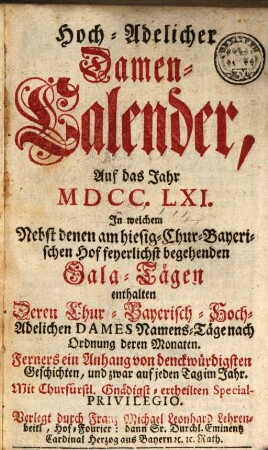 Hoch-Adelicher
Damen-
Calender,
Auf das Jahr
MDCC. LXI.
In welchem
Nebst denen am hiesig-Chur-Bayeri-
schen Hof feyerlichst begehenden
Gala-Tägen
enthalten
Deren Chur-Bayerisch-Hoch-
Adelichen DAMES Namens-Täge nach
Ordnung deren Monaten.
Ferners ein Anhang von denckwürdigsten
Geschichten, und zwar auf jeden Tag im Jahr.
Mit Churfürstl. Gnädigst-ertheilten Special-
PRIVILEGIO.
Verlegt durch Franz Michael Leonhard Lehren-
beitl, Hof-Fourier: dann Sr. Durchl. Eminentz
Cardinal Herzog aus Bayern ꝛc. ꝛc. Rath.